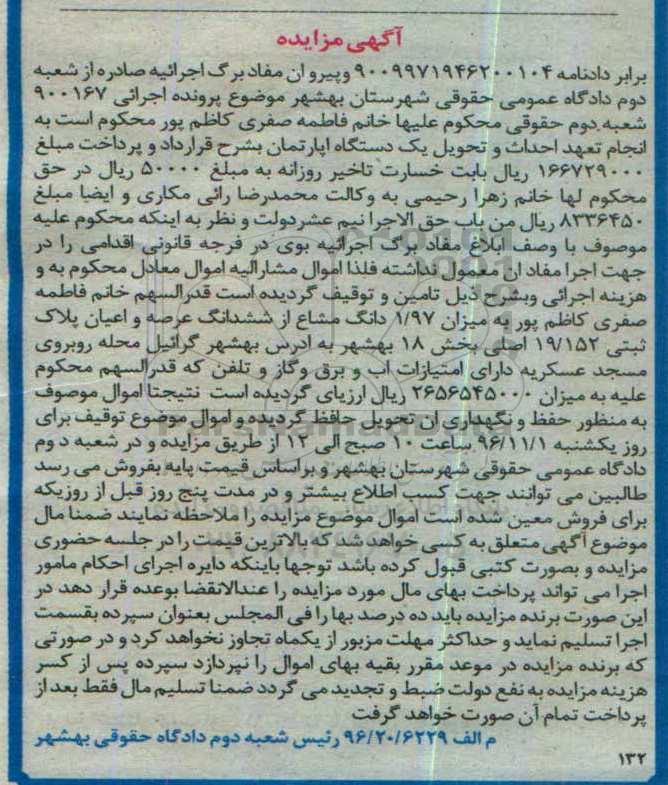 آگهی مزایده
برابر دادنامه ۹۰۰۹۹۷۱۹۴۶۲۰۰۱۰۴ وپیرو ان مفاد برگ اجرائیه صادره از شعبه
دوم دادگاه عمومی حقوقی شهرستان بهشهر موضوع پرونده اجرائی ۹۰۰۱۶۷
شعبه دوم حقوقی محکوم علیها خانم فاطمه صفری کاظم پور محکوم است به
انجام تعهد احداث و تحویل یک دستگاه اپارتمان بشرح قرارداد و پرداخت مبلغ
۱۶۶۷۲۹۰۰۰ ریال بابت خسارت تاخیر روزانه به مبلغ ۵۰۰۰۰ ریال در حق
محکوم لها خانم زهرا رحیمی به وکالت محمدرضا رائی مکاری و ایضا مبلغ
۸۳۳۶۴۵۰ ریال من باب حق الاجرا نیم عشردولت و نظر به اینکه محکوم علیه
موصوف با وصف ابلاغ مفاد برگ اجرائیه بوی در فرجه قانونی اقدامی را در
جهت اجرا مفاد ان معمول نداشته فلذا اموال مشارالیه اموال معادل محکوم به و
هزینه اجرائی وبشرح ذیل تامین و توقیف گردیده است قدرالسهم خانم فاطمه
صفری کاظم پور به میزان ۱/۹۷ دانگ مشاع از ششدانگ عرصه و اعیان پلاک
ثبتی ۱۹/۱۵۲ اصلی بخش ۱۸ بهشهر به ادرس بهشهر گرائیل محله روبروی
مسجد عسکریه دارای امتیازات اب و برق وگاز و تلفن که قدرالسهم محکوم
علیه به میزان ۲۶۵۶۵۴۵۰۰۰ ریال ارزیای گردیده است نتیجتا اموال موصوف
به منظور حفظ و نگهداری ان تحویل حافظ گردیده و اموال موضوع توقیف برای
روز یکشنبه ۹۶/۱۱/۱ ساعت ۱۰ صبح الی ۱۲ از طریق مزایده و در شعبه دوم
دادگاه عمومی حقوقی شهرستان بهشهر و براساس قیمت پایه بفروش می رسد
طالبین می توانند جهت کسب اطلاع بیشتر و در مدت پنج روز قبل از روزیکه
برای فروش معین شده است اموال موضوع مزایده را ملاحظه نمایند ضمنا مال
موضوع آگهی متعلق به کسی خواهد شد که بالاترین قیمت را در جلسه حضوری
مزایده و بصورت کتبی قبول کرده باشد توجها باینکه دایره اجرای احکام مامور
اجرا می تواند پرداخت بهای مال مورد مزایده را عندالانقضا بوعده قرار دهد در
این صورت برنده مزایده باید ده درصد بها را فی المجلس بعنوان سپرده بقسمت
اجرا تسلیم نماید و حداکثر مهلت مزبور از یکماه تجاوز نخواهد کرد و در صورتی
که برنده مزایده در موعد مقرر بقیه بهای اموال را نپردازد سپرده پس از کسر
هزینه مزایده به نفع دولت ضبط و تجدید می گردد ضمنا تسلیم مال فقط بعد از
پرداخت تمام آن صورت خواهد گرفت
م الف ۹۶/۲۰/۶۲۲۹ رئیس شعبه دوم دادگاه حقوقی بهشهر
۱۳۲